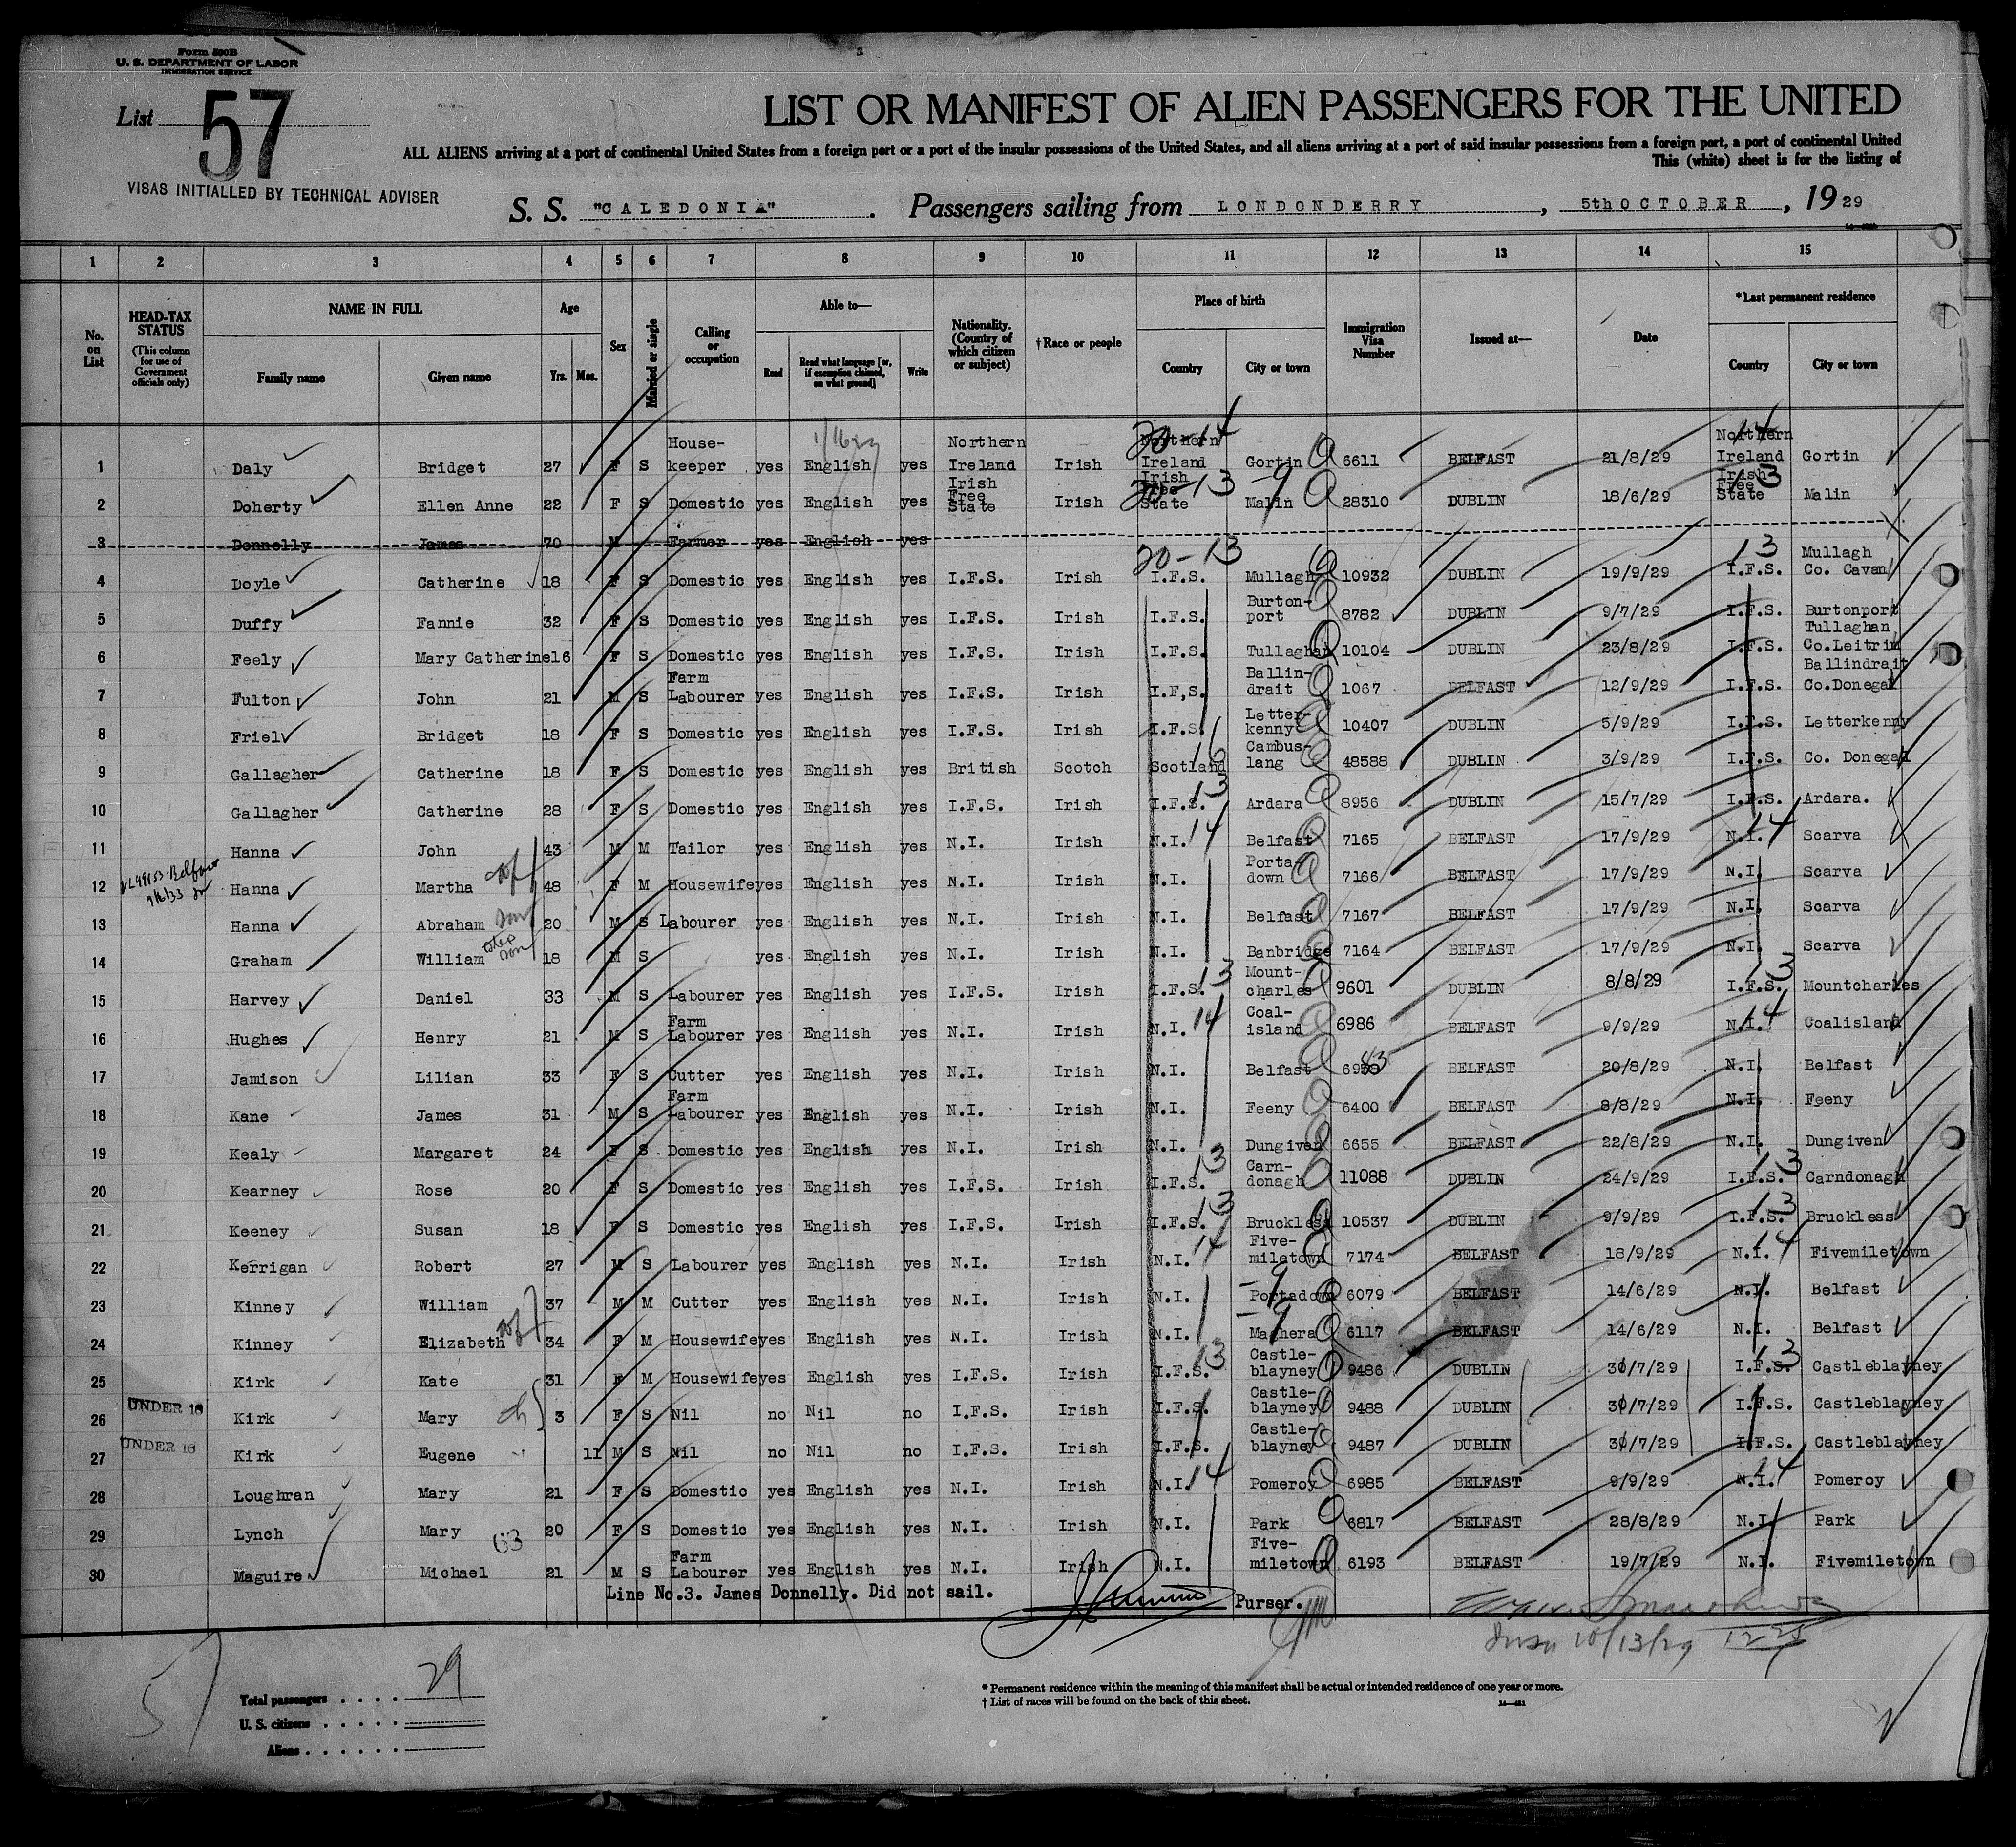 Form 500B
U. S. DEPARTMENT OF LABOR
IMMIGRATION SERVICE
List 57
VISAS INITIALLED BY TECHNICAL ADVISER
LIST OR MANIFEST OF ALIEN PASSENGERS FOR THE UNITED
ALL ALIENS arriving at a port of continental United States from a foreign port or a port of the insular possessions of the United States, and all aliens arriving at a port of said insular possessions from a foreign port, a port of continental United
This (white) sheet is for the listing of
S. S. "CALEDONIA". Passengers sailing from LONDONDERRY, 5th OCTOBER, 1929
1 2 3 4 5 6 7 8 9 10 11 12 13 14 15
No. on List
HEAD-TAX STATUS
(This column for use of Government officials only)
NAME IN FULL
Family name
Given name
Age
Yrs. Mos.
Sex
Married or single
Calling or occupation
Able to—
Read
Read what language [or, if exemption claimed, on what ground]
Write
Nationality. (Country of which citizen or subject)
†Race or people
Place of birth
Country
City or town
Immigration Visa Number
Issued at—
Date
*Last permanent residence
Country
City or town
1 Daly Bridget 27 F S House-keeper yes English yes Northern Ireland Irish Northern Ireland Gortin 6611 BELFAST 21/8/29 Northern Ireland Gortin
2 Doherty Ellen Anne 22 F S Domestic yes English yes Irish Free State Irish Irish Free State Malin 28310 DUBLIN 18/6/29 Irish Free State Malin
3 Donnelly James 70 M Farmer yes English yes
4 Doyle Catherine 18 F S Domestic yes English yes I.F.S. Irish I.F.S. Mullagh 10932 DUBLIN 19/9/29 I.F.S. Mullagh Co. Cavan
5 Duffy Fannie 32 F S Domestic yes English yes I.F.S. Irish I.F.S. Burton-port 8782 DUBLIN 9/7/29 I.F.S. Burtonport
6 Feely Mary Catherine 16 F S Domestic yes English yes I.F.S. Irish I.F.S. Tullaghan 10104 DUBLIN 23/8/29 I.F.S. Tullaghan Co.Leitrim
7 Fulton John 21 M S Farm Labourer yes English yes I.F.S. Irish I.F,S. Ballin-drait 1067 BELFAST 12/9/29 I.F.S. Ballindrait Co.Donegal
8 Friel Bridget 18 F S Domestic yes English yes I.F.S. Irish I.F.S. Letter-kenny 10407 DUBLIN 5/9/29 I.F.S. Letterkenny
9 Gallagher Catherine 18 F S Domestic yes English yes British Scotch Scotland Cambus-lang 48588 DUBLIN 3/9/29 I.F.S. Co. Donegal
10 Gallagher Catherine 28 F S Domestic yes English yes I.F.S. Irish I.F.S. Ardara 8956 DUBLIN 15/7/29 I.F.S. Ardara.
11 Hanna John 43 M M Tailor yes English yes N.I. Irish N.I. Belfast 7165 BELFAST 17/9/29 N.I. Scarva
12 Hanna Martha 48 F M Housewife yes English yes N.I. Irish N.I. Porta-down 7166 BELFAST 17/9/29 N.I. Scarva
13 Hanna Abraham son 20 M S Labourer yes English yes N.I. Irish N.I. Belfast 7167 BELFAST 17/9/29 N.I. Scarva
14 Graham William step son 18 M S yes English yes N.I. Irish N.I. Banbridge 7164 BELFAST 17/9/29 N.I. Scarva
15 Harvey Daniel 33 M S Labourer yes English yes I.F.S. Irish I.F.S. Mount-charles 9601 DUBLIN 8/8/29 I.F.S. Mountcharles
16 Hughes Henry 21 M S Farm Labourer yes English yes N.I. Irish N.I. Coal-island 6986 BELFAST 9/9/29 N.I. Coalisland
17 Jamison Lilian 33 F S Cutter yes English yes N.I. Irish N.I. Belfast BELFAST 20/8/29 N.I. Belfast
18 Kane James 31 M S Farm Labourer yes English yes N.I. Irish N.I. Feeny 6400 BELFAST 8/8/29 N.I. Feeny
19 Kealy Margaret 24 F S Domestic yes English yes N.I. Irish N.I. Dungiven 6655 BELFAST 22/8/29 N.I. Dungiven
20 Kearney Rose 20 F S Domestic yes English yes I.F.S. Irish I.F.S. Carn-donagh 11088 DUBLIN 24/9/29 I.F.S. Carndonagh
21 Keeney Susan 18 F S Domestic yes English yes I.F.S. Irish I.F.S. Bruckless 10537 DUBLIN 9/9/29 I.F.S. Bruckless
22 Kerrigan Robert 27 M S Labourer yes English yes N.I. Irish N.I. Five-miletown 7174 BELFAST 18/9/29 N.I. Fivemiletown
23 Kinney William 37 M M Cutter yes English yes N.I. Irish N.I. Portadown 6079 BELFAST 14/6/29 N.I. Belfast
24 Kinney Elizabeth 34 F M Housewife yes English yes N.I. Irish N.I. Maghera 6117 BELFAST 14/6/29 N.I. Belfast
25 Kirk Kate 31 F M Housewife yes English yes I.F.S. Irish I.F.S. Castle-blayney 9486 DUBLIN 30/7/29 I.F.S. Castleblayney
26 UNDER 16 Kirk Mary ch 3 F S Nil no Nil no I.F.S. Irish I.F.S. Castle-blayney 9488 DUBLIN 30/7/29 I.F.S. Castleblayney
27 UNDER 16 Kirk Eugene 11 M S Nil no Nil no I.F.S. Irish I.F.S. Castle-blayney 9487 DUBLIN 30/7/29 I.F.S. Castleblayney
28 Loughran Mary 21 F S Domestic yes English yes N.I. Irish N.I. Pomeroy 6985 BELFAST 9/9/29 N.I. Pomeroy
29 Lynch Mary 20 F S Domestic yes English yes N.I. Irish N.I. Park 6817 BELFAST 28/8/29 N.I. Park
30 Maguire Michael 21 M S Farm Labourer yes English yes N.I. Irish N.I. Five-miletown 6193 BELFAST 19/7/29 N.I. Fivemiletown
Line No.3. James Donnelly. Did not sail.
Purser.
10/13/29
57
Total passengers . . . . 29
U. S. citizens . . . . .
Aliens . . . . . .
* Permanent residence within the meaning of this manifest shall be actual or intended residence of one year or more.
† List of races will be found on the back of this sheet.